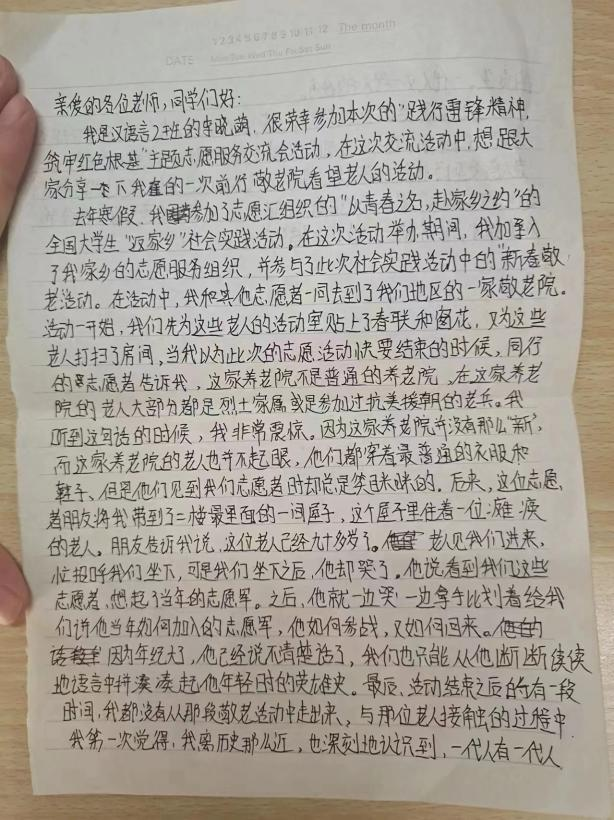 1 2 3 4 5 6 7 8 9 10 11 12 The month
DATE Mon Tue Wed Thu Fri Sat Sun
亲爱的各位老师,同学们好:
我是汉语言2班的李晓萌,很荣幸参加本次的“践行雷锋精神,
筑牢红色根基”主题志愿服务交流会活动,在这次交流活动中,想跟大
家分享一下我的一次前行敬老院看望老人的活动。
去年寒假,我参加了志愿汇组织的“以青春之名,赴家乡之约”的
全国大学生“返家乡”社会实践活动。在这次活动举办期间,我加入
了我家乡的志愿服务组织,并参与了此次社会实践活动中的“新春敬
老活动。在活动中,我和其他志愿者一同去到了我们地区的一家敬老院。
活动一开始,我们先为这些老人的活动室贴上了春联和窗花,又为这些
老人打扫了房间,当我以为此次的志愿活动快要结束的时候,同行
的志愿者告诉我,这家养老院不是普通的养老院,在这家养老
院的老人大部分都是烈士家属或是参加过抗美援朝的老兵。我
听到这句话的时候,我非常震惊。因为这家养老院并没有那么“新”,
而这家养老院的老人也并不起眼,他们都穿着最普通的衣服和
鞋子、但是他们见到我们志愿者时却总是笑眯眯的。后来,这位志愿
者朋友将我带到了二楼最里面的一间屋子,这个屋子里住着一位瘫痪
的老人。朋友告诉我说,这位老人已经九十多岁了。老人见我们进来,
忙招呼我们坐下,可是我们坐下之后,他却哭了。他说看到我们这些
志愿者,想起了当年的志愿军。之后,他就一边哭一边拿手比划着给我
们讲他当年如何加入的志愿军,他如何参战,又如何回来。
因为年纪大了,他已经说不清楚话了,我们也只能从他断断续续
地语言中拼凑起他年轻时的英雄史。最后,活动结束之后的有一段
时间,我都没有从那段敬老活动中走出来、与那位老人接触的过程中
我第一次觉得,我离历史那么近,也深刻地认识到,一代人有一代人